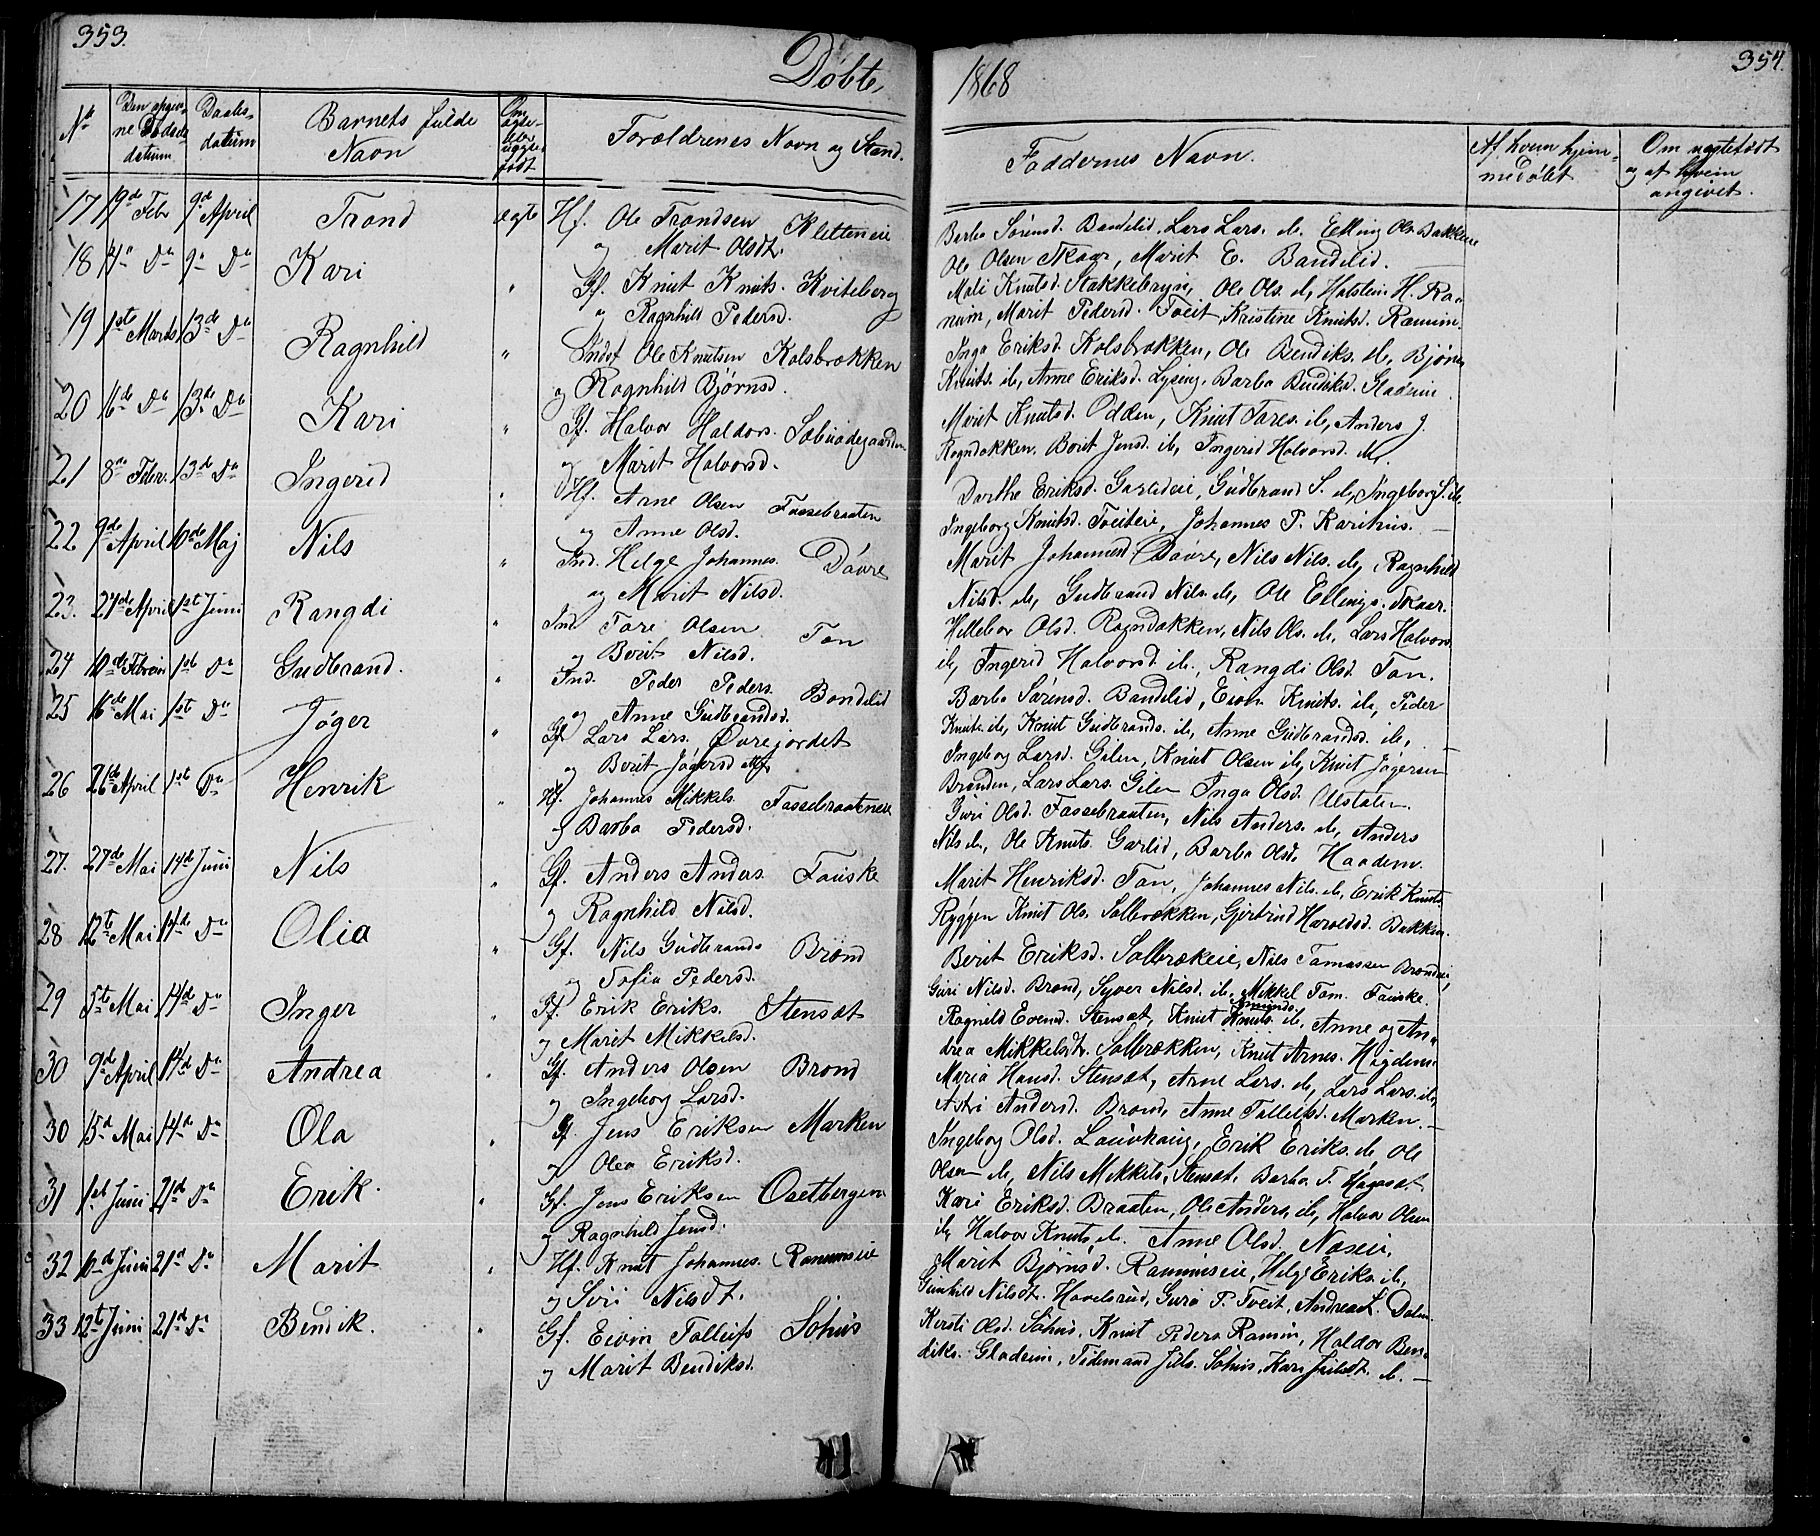 353.
Døbte,
1868
354.
No
Den opgiv-
ne Fødsels
datum
Daabs-
datum
Barnets fulde
Navn
Om
ægte
eller
uægte
født
Forældrenes Navn og Stand.
Faddernes Navn.
Af hvem hjem-
medøbt
Om uægtefødt
og af hvem
angivet.
17 19de Febr 9de April Trond ægte Hf. Ole Trondsen Kletteneie
og Marit Olsdtr.
Barbo Sørensd. Bandelid, Lars Lars. ib. Elling Ols. Bakkene
Ole Olsen Skaar, Marit E. Bandelid.
18 Do 9de Do Kari " Gf. Knut Knuts. Kviteberg
og Ragnhild Pedersd.
Mali Knutsd. Stakkebryn, Ole Ols. ib, Halstein H. Ra-
num, Marit Pedersd. Tveit, Kristine Knutsd. Ranum.
19 1ste Marts 13de Do Ragnhild " Indst Ole Knutsen Kolsbrækken
og Ragnhild Bjørnsd.
Inga Eriksd. Kolsbrækken, Ole Bendiks. ib, Bjørn
Knuts. ib, Anne Eriksd. Lysing, Barbo Bendiksd. Gladeim.
20 16de Do 13de Do Kari " Gf. Halvor Haldors.
og Marit Halvorsd.
Marit Knutsd. Odden, Knut Tores. ib, Anders J.
Rogndokken, Borit Jensd. ib, Ingerid Halvorsd. ib.
21 8de Febr. 13de Do Ingerid " Hf. Arne Olsen Fassebraaten
og Anne Olsd.
Dorthe Eriksd. Garlideie, Gudbrand S. ib, Ingeborg S. ib.
Ingeborg Knutsd. Tveiteie, Johannes P. Karihus.
22 9de April 10de Maj Nils " Ind. Helge Johannes. Døvre
og Marit Nilsd.
Marit Johannesd. Døvre, Nils Nils. ib, Ragnhild
Nilsd. ib, Gudbrand Nils. ib, Ole Ellings. Skaar.
23. 27de April 1st Juni Rangdi " Ind. Tore Olsen Ton
og Borit Nilsd.
Hellebor Olsd. Rogndokken, Nils Ols. ib, Lars Halvors
ib, Ingerid Halvorsd. ib, Rangdi Olsd. Ton.
24 10de Februar 1ste Do Gudbrand. " Ind. Peder Peders. Bandelid
og Anne Gudbrandsd.
Barbo Sørensd. Bandelid, Eivin Knuts. ib, Peder
Knuts. ib, Knut Gudbrands. ib, Anne Gudbrandsd. ib,
25 16de Mai 1ste Do Jøger " Gf. Lars Lars. Øvrejordet
og Borit Jøgersd.
Ingeborg Larsd. Gilen, Knut Olsen ib, Knut Jøgersen
Brønden, Lars Lars. Gilen Inga Olsd. Ulstølen.
26 26de April 1ste Do Henrik " Hf. Johannes Mikkels. Fassebraateneie
og Barbo Pedersd.
Guri Olsd. Fassebraaten, Nils Anders. ib, Anders
Nils. ib, Ole Knuts. Garlid, Barbo Olsd. Haadem.
27. 27de Mai 14d Juni Nils " Gf. Anders Anders. Fauske
og Ragnhild Nilsd.
Marit Henriksd. Ton, Johannes Nils. ib, Erik Knuts.
Ryggen Knut Ols. Solbrækken, Gjertrud Haroldsd. Bakken.
28 12te Mai 14de Do Olia " Gf. Nils Gudbrands Brønd
og Sofia Pedersd.
Berit Eriksd. Solbrækeie, Nils Tamassen Brøndeie,
Guri Nilsd. Brønd, Syver Nilsd. ib, Mikkel Tom. Fauske.
29 5te Mai 14de Do Inger " Gf. Erik Eriks. Stensæt
og Marit Mikkelsd.
Ragneld Evensd. Stensæt, Knut Knuts. Amunds. ib, Anne og An-
drea Mikkelsdtr. Solbrækken, Knut Arnes. Høgdem.
30 9de April 14de Do Andrea " Gf. Anders Olsen Brønd
og Ingeborg Larsd.
Maria Hansd. Stensæt, Arne Lars. ib, Lars Lars. ib,
Astri Andersd. Brønd, Anne Tollefsd. Marken.
30 15d Mai 14de Do Ola " Gf. Jens Eriksen Marken
og Olea Eriksd.
Ingeborg Olsd. Lauvhaug, Erik Eriks. ib, Ole
Olsen ib, Nils Mikkels. Stensæt, Barbo T. Høgasæt
31 1st Juni 21de Do Erik. " Gf. Jens Eriksen Oxetbergen
og Ragnhild Jensd.
Kari Eriksd. Braaten, Ole Anders. ib, Halvor Olsen
ib, Halvor Knuts. ib. Anne Olsd. Næseie.
32 10de Juni 21d Do Marit " Hf. Knut Johannes. Ranumseie
og Siri Nilsdt.
Marit Bjørnsd. Ranumseie, Helge Eriks. ib,
Gunhild Nilsdt. Havelsrud, Guro P. Tveit, Andreas L. Dalen
33 12te Juni 21d Do Bendik. " Gf. Eivin Tollefs Søhus
og Marit Bendiksd.
Kersti Olsd. Søhus, Knut Peders Ranum, Haldor Ben-
diks. Gladeim, Tidemand Juls. Søhus, Kari Juulsdt. ib.